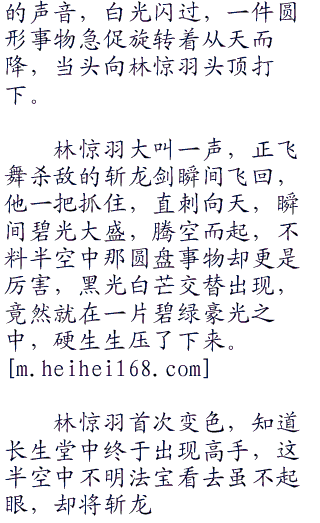 的声音，白光闪过，一件圆
形事物急促旋转着从天而
降，当头向林惊羽头顶打
下。
林惊羽大叫一声，正飞
舞杀敌的斩龙剑瞬间飞回，
他一把抓住，直刺向天，瞬
间碧光大盛，腾空而起，不
料半空中那圆盘事物却更是
厉害，黑光白芒交替出现，
竟然就在一片碧绿豪光之
中，硬生生压了下来。
[m.heihei168.com]
林惊羽首次变色，知道
长生堂中终于出现高手，这
半空中不明法宝看去虽不起
眼，却将斩龙